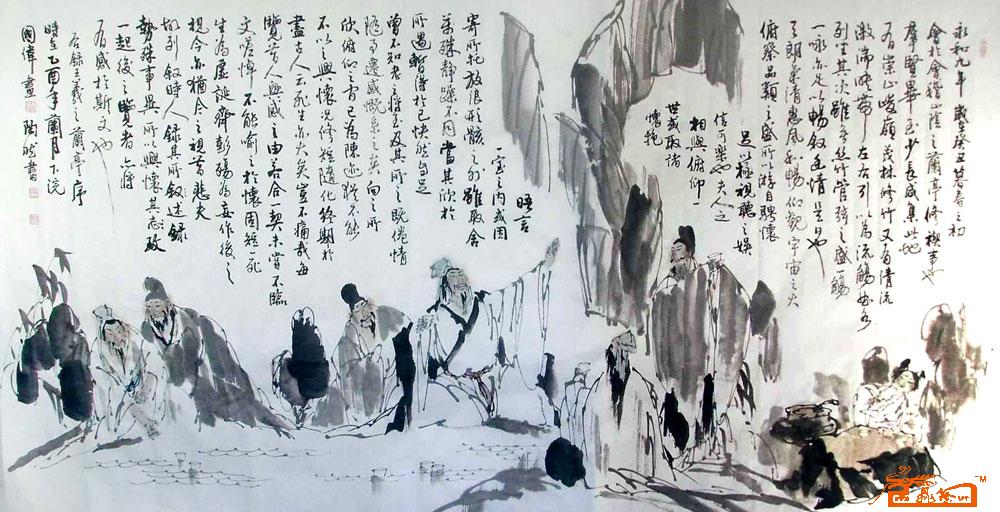 永和九年歲在癸丑暮春之初
會於會稽山陰之蘭亭修禊事也
群賢畢至少長咸集此地
有崇山峻嶺茂林修竹又有清流
激湍映帶左右引以為流觴曲水
列坐其次雖無絲竹管弦之盛觴
一咏亦足以暢敘幽情是日也
天朗氣清惠風和暢仰觀宇宙之大
俯察品類之盛所以游目騁懷
足以極視聽之娛
信可樂也夫人之
相與俯仰一
世或取諸
懷抱
晤言
一室之內或因
寄所托放浪形骸之外雖取舍
萬殊靜躁不同當其欣於
所遇暫得於己快然自足
曾不知老之將至及其所之既倦情
隨事遷感慨系之矣向之所
欣俯仰之間已為陳迹猶不能
不以之興懷況修短隨化終期於
盡古人云死生亦大矣豈不痛哉每
覽昔人興感之由若合一契未嘗不臨
文嗟悼不能喻之於懷固知一死
生為虛誕齊彭殤為妄作後之
視今亦猶今之視昔悲夫
故列敘時人錄其所敘述錄
勢殊事異所以興懷其志致
一起後之覽者亦將
有感於斯文也
右錄王羲之蘭亭序
時在乙酉年蘭月下浣
國偉畫 陶然書